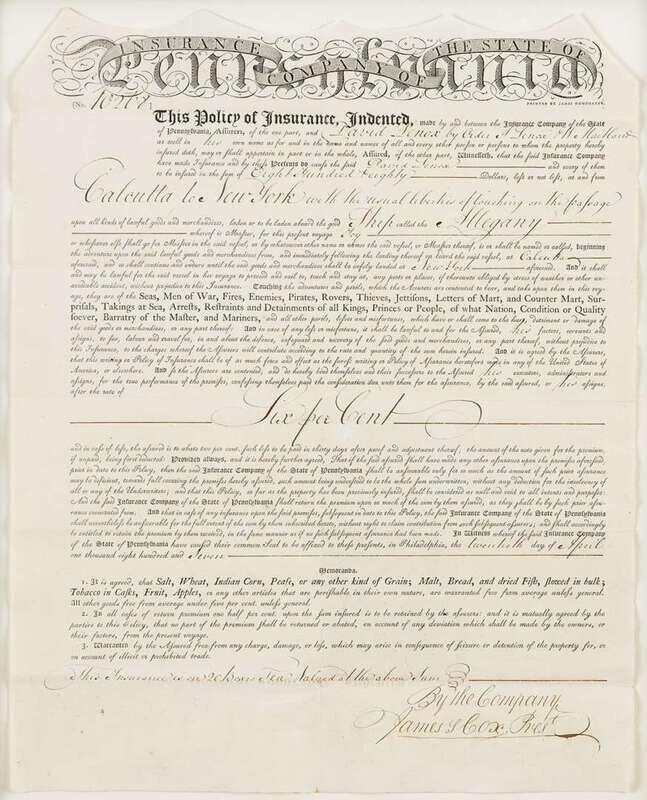 INSURANCE COMPANY OF THE STATE OF
PENNSYLVANIA
PRINTED BY JAMES HUMPHREYS.
(No.
This Policy of Insurance, Indented, made by and between the Insurance Company of the State
of Pennsylvania, Assurers, of the one part, and David Lenox by Order of Lenox & W. Maitland
as well in his own name as for and in the name and names of all and every other person or persons to whom the property hereby
insured doth, may or shall appertain in part or in the whole, Assured, of the other part, Witnesseth, that the said Company
have made Insurance and by these Presents do cause the said David Lenox and every of them
to be insured in the sum of Eight Hundred & eighty Dollars, lost or not lost, at and from
Calcutta to New York with the usual liberties of touching on the passage
upon all kinds of lawful goods and merchandizes, laden or to be laden aboard the good Ship called the Allegany
whereof is Master, for this present voyage
or whosoever else shall go for Master in the said vessel, or by whatsoever other name or names the said vessel, or Master thereof, is or shall be named or called, beginning
the adventure upon the said lawful goods and merchandizes from, and immediately following the loading thereof on board the said vessel, at Calcutta
aforesaid, and so shall continue and endure until the said goods and merchandizes shall be safely landed at New York aforesaid. And it shall
and may be lawful for the said vessel in her voyage to proceed and sail to, touch and stay at, any ports or places, if thereunto obliged by stress of weather or other unavoidable
accident, without prejudice to this Insurance. Touching the adventures and perils, which the Assurers are contented to bear, and take upon them in this voyage,
they are of the Seas, Men of War, Fires, Enemies, Pirates, Rovers, Thieves, Jettisons, Letters of Mart, and Counter Mart, Surprisals,
Takings at Sea, Arrests, Restraints and Detainments of all Kings, Princes or People, of what Nation, Condition or Quality
soever, Barratry of the Master, and Mariners, and all other perils, losses and misfortunes, which have or shall come to the hurt, detriment or damage of
the said goods or merchandizes, or any part thereof: And in case of any loss or misfortune, it shall be lawful to and for the Assured, his factors, servants and
assigns, to sue, labour and travel for, in and about the defence, safeguard and recovery of the said goods and merchandizes, or any part thereof, without prejudice to
this Insurance, to the charges whereof the Assurers will contribute according to the rate and quantity of the sum herein insured. And it is agreed by the Assurers,
that this writing or Policy of Insurance shall be of as much force and effect as the surest writing or Policy of Assurance heretofore made in any of the United States of
America, or elsewhere. And so the Assurers are contented, and do hereby bind themselves and their successors to the Assured his executors, administrators and
assigns, for the true performance of the premises, confessing themselves paid the consideration due unto them for the assurance, by the said assured, or his assigns,
after the rate of
Six per Cent
and in case of loss, the assured is to abate two per cent. Such loss to be paid in thirty days after proof and adjustment thereof, the amount of the note given for the premium,
if unpaid, being first deducted: Provided always, and it is hereby further agreed, That if the said assured shall have made any other assurance upon the premises aforesaid
prior in date to this Policy, then the said Insurance Company of the State of Pennsylvania shall be answerable only for so much as the amount of such prior assurance
may be deficient, towards full covering the premises hereby assured, such amount being understood to be the whole sum underwritten, without any deduction for the insolvency of
all or any of the Underwriters; and that this Policy, so far as the property has been previously insured, shall be considered as null and void to all intents and purposes:
And the said Insurance Company of the State of Pennsylvania shall return the premium upon so much of the sum by them assured, as they shall be by such prior assurance
exonerated from. And that in case of any insurance upon the said premises, subsequent in date to this Policy, the said Insurance Company of the State of Pennsylvania
shall nevertheless be answerable for the full extent of the sum by them subscribed hereto, without right to claim contribution from such subsequent assurers; and shall accordingly
be entitled to retain the premium by them received, in the same manner as if no such subsequent assurance had been made. In Witness whereof the said Insurance Company
of the State of Pennsylvania have caused their common Seal to be affixed to these presents, in Philadelphia, the twentieth day of April
one thousand eight hundred and Seven
Memoranda.
1. It is agreed, that Salt, Wheat, Indian Corn, Pease, or any other kind of Grain; Malt, Bread, and dried Fish, stowed in bulk;
Tobacco in Casks, Fruit, Apples, or any other articles that are perishable in their own nature, are warranted free from average unless general.
All other goods free from average under five per cent. unless general.
2. In all cases of return premium one half per cent. upon the sum insured is to be retained by the assurers: and it is mutually agreed by the
parties to this Policy, that no part of the premium shall be returned or abated, on account of any deviation which shall be made by the owners, or
their factors, from the present voyage.
3. Warranted by the Assured free from any charge, damage, or loss, which may arise in consequence of seizure or detention of the property for, or
on account of illicit or prohibited trade.
This Insurance is on Valued at the above Sum
By the Company
James S Cox, Prest